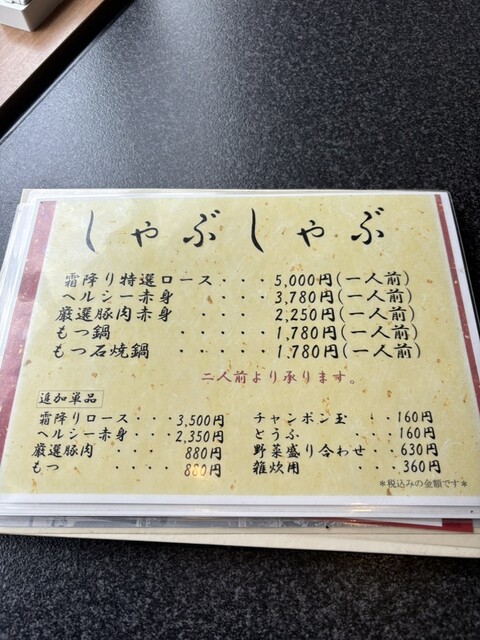 しゃぶしゃぶ
霜降り特選ロース・・・5,000円(一人前)
ヘルシー赤身・・・・・3,780円(一人前)
厳選豚肉赤身・・・・・2,250円(一人前)
もつ鍋・・・・・1,780円(一人前)
もつ石焼鍋・・・・・1,780円(一人前)
二人前より承ります。
追加単品
霜降りロース・・・3,500円
ヘルシー赤身・・・2,350円
厳選豚肉・・・・880円
もつ・・・・880円
チャンポン玉・・160円
とうふ・・・160円
野菜盛り合わせ・・630円
雑炊用・・・360円
*税込みの金額です*